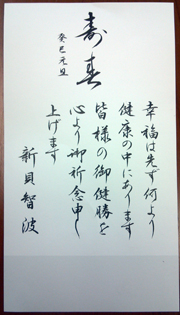 寿春
癸巳元旦
幸福は先ず何より
健康の中にあります
皆様の御健勝を
心より御祈念申し
上げます
新貝智波